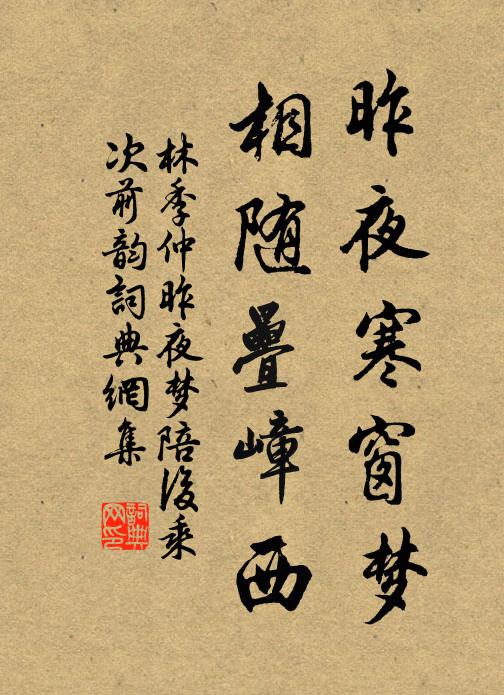 昨夜寒窗梦
相随叠嶂西
林季仲昨夜梦陪后乘
次前韵词典网集
词典网印